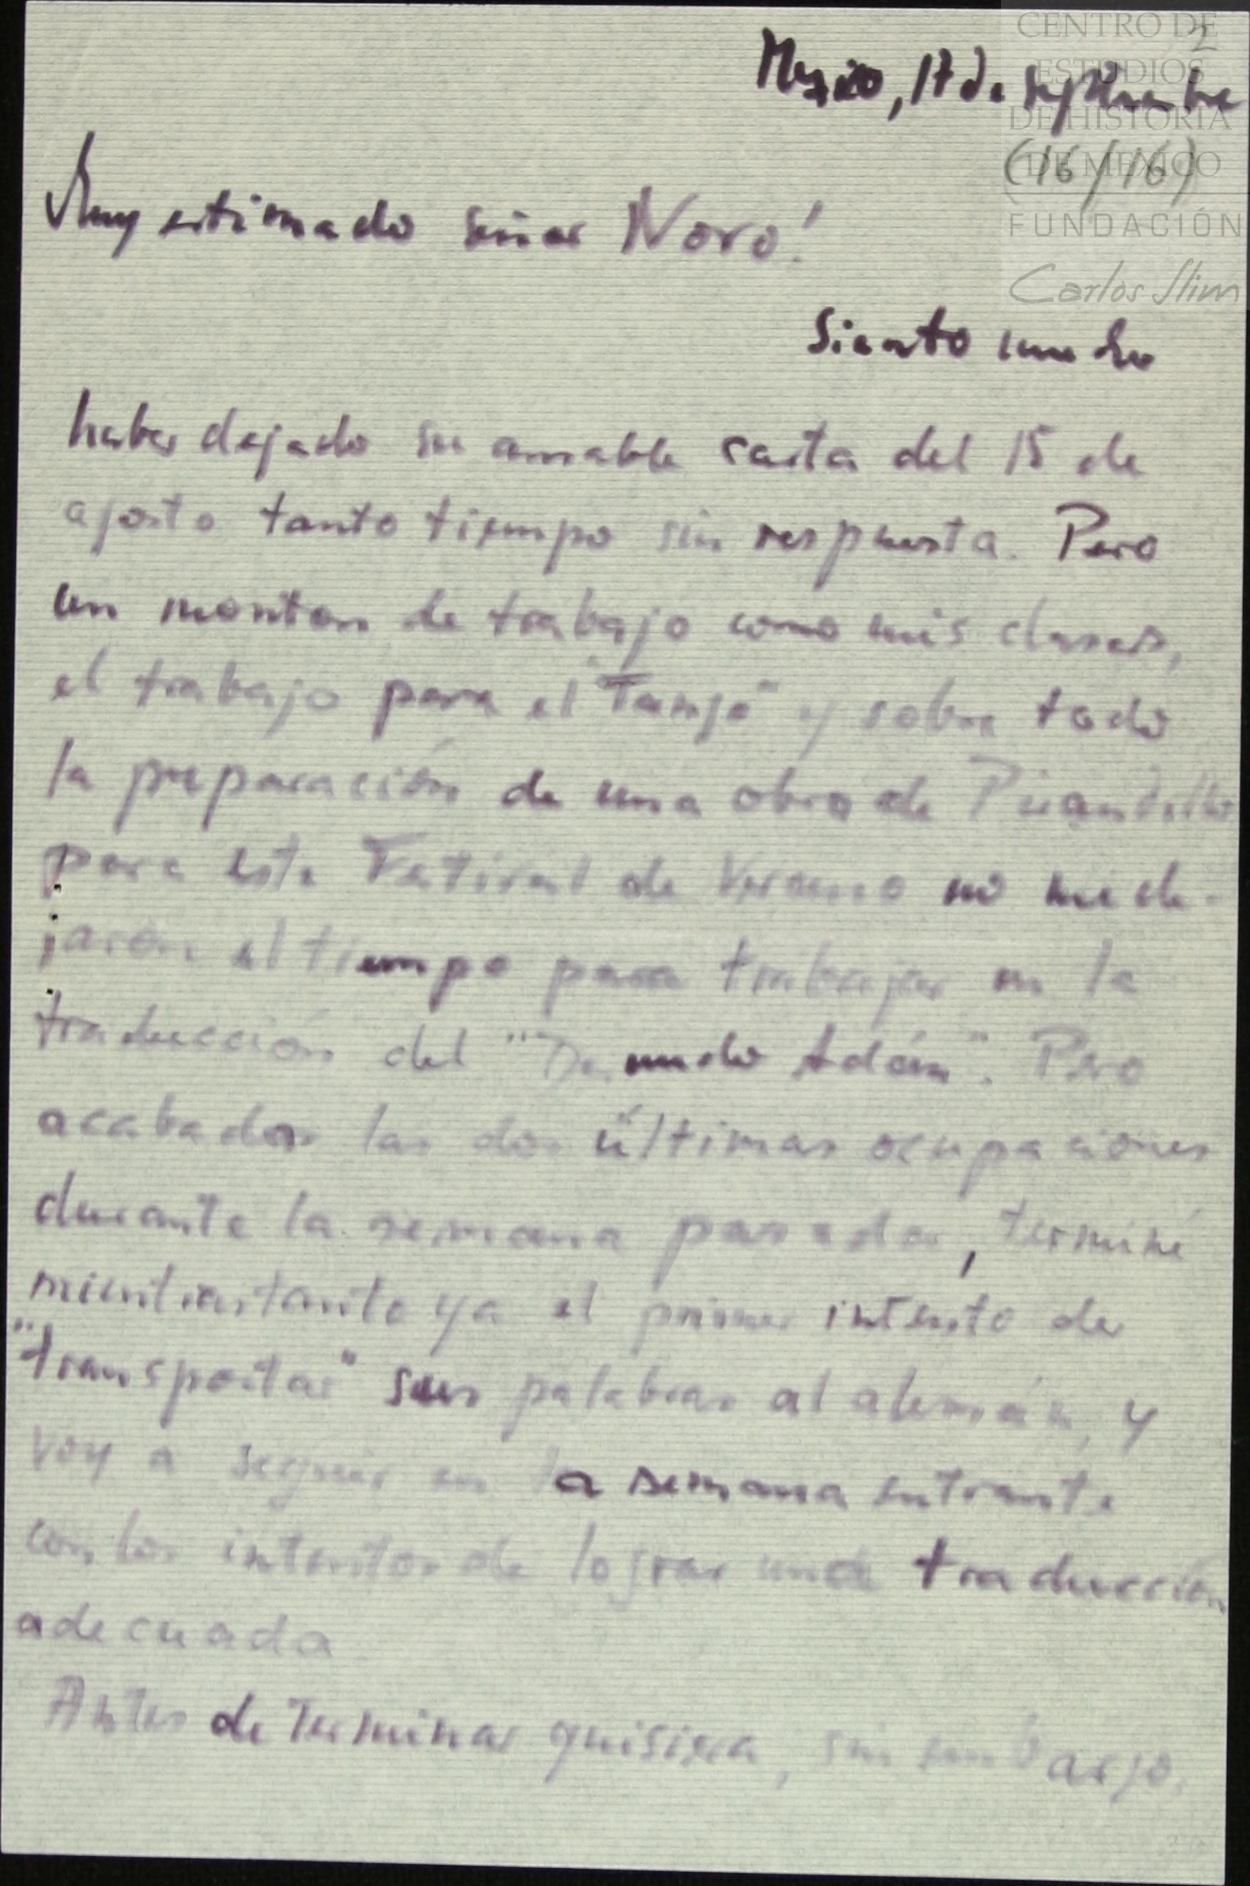 CENTRO DE
ESTUDIOS
DE HISTORIA
DE MEXICO
FUNDACIÓN
Carlos Slim
2
Mexico, 17 de septiembre
(16/16)
Muy estimado señor Novo!
Siento mucho
haber dejado su amable carta del 15 de
agosto tanto tiempo sin respuesta. Pero
un monton de trabajo como mis clases,
el trabajo para el "Tango" y sobre todo
la preparación de una obra de Pirandello
para este Festival de Verano no me de-
jaron el tiempo para trabajar en la
traducción del "Desnudo Adán". Pero
acabadas las dos últimas ocupaciones
durante la semana pasada, terminé
mientrastanto ya el primer intento de
"transportar" sus palabras al alemán, y
voy a seguir en la semana entrante
con los intentos de lograr una traducción
adecuada.
Antes de terminar quisiera, sin embargo,